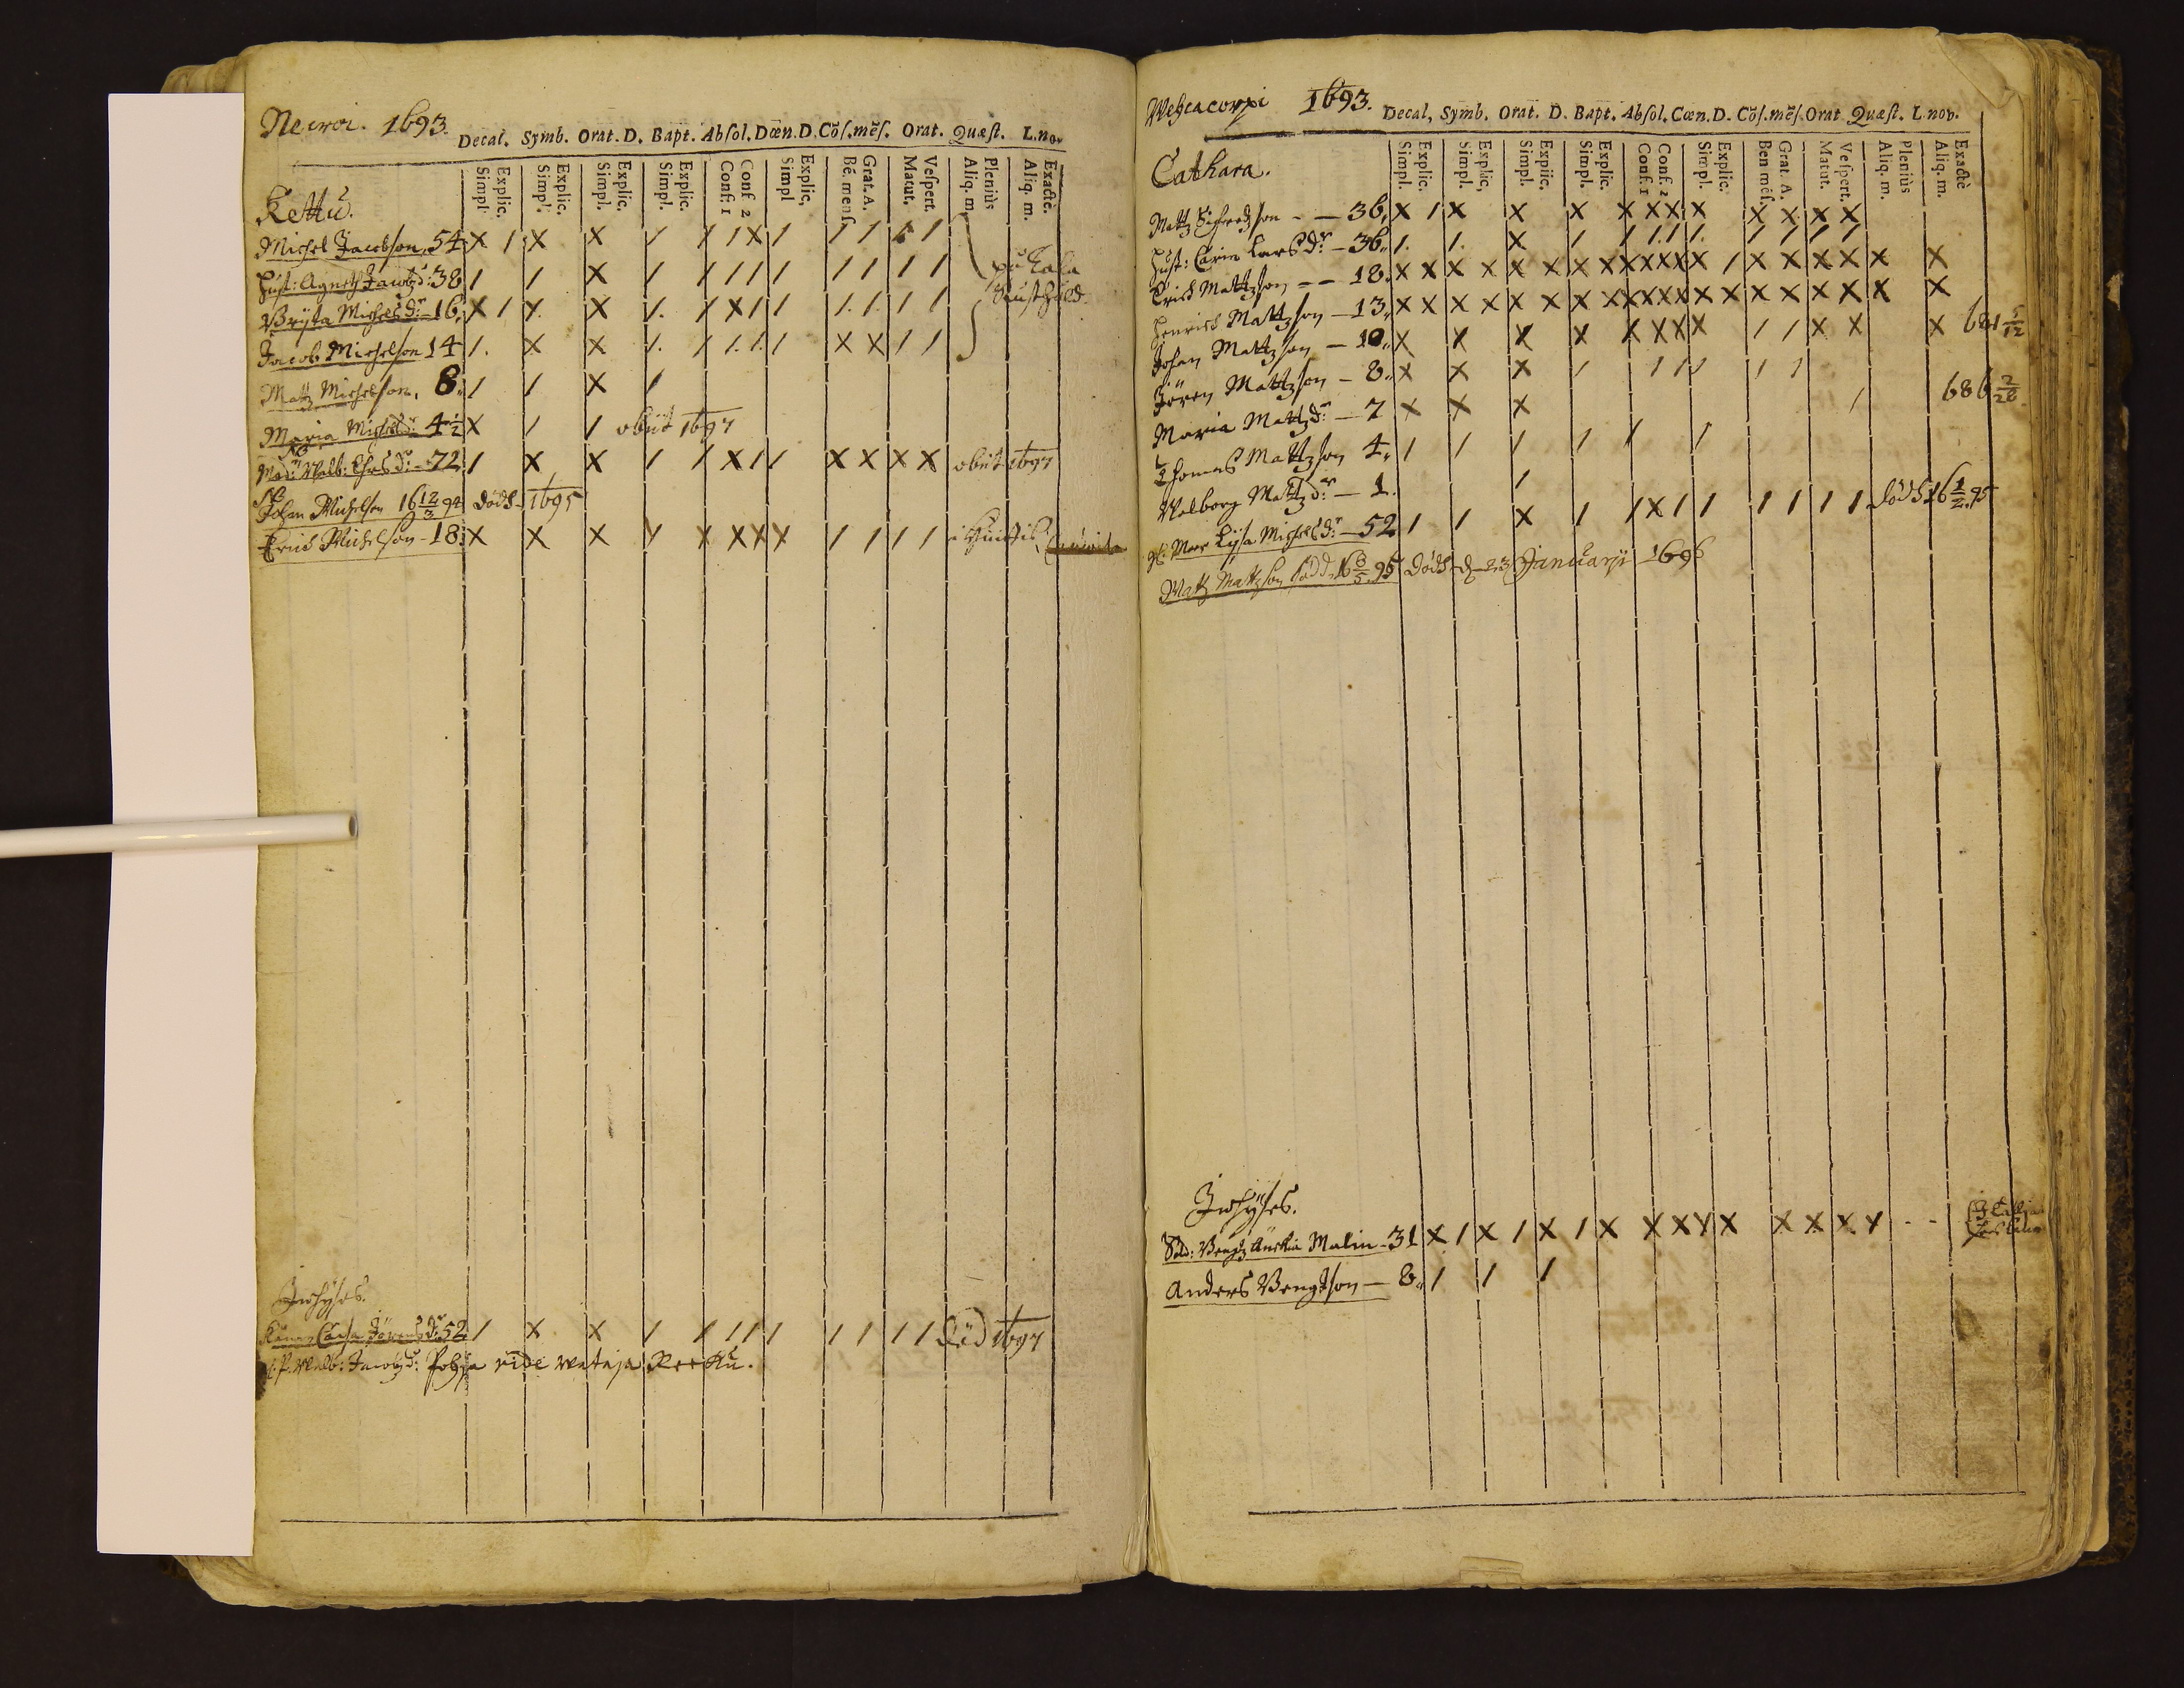 Necroi. 1693.
Decal. Symb. Orat. D. Bapt. Absol. Dœn. D. Cõs. mẽs. Orat. Quæst. L. nov.
Simpl. Explic. Simpl. Explic. Simpl. Explic. Simpl. Explic. Conf. 1 Conf. 2 Simpl Explic. Bé. mens Grat. A. Matut. Vespert. Aliq. m. Pleniùs Aliq. m. Exactè.
Kettu.
Michel Jacobson, 54 X / X X / / / X / / / / /
Hust: Agneta Jacobsdr: 38 / / X / / / / / / / / / på Kala
Rusthåld.
Bryta Michelsdr: 16, X / X. X /. / X / / /. /. / /
Jacob Michelson 14 /. X X /. / /. /. / X X / /
Matz Michelson, 8. / / X /
Maria Michelsdr 4½ X / / obiit 1697
Mod: Walb: dr 72 / X X / / X / / X X X X obiit 1697
Johan Michelson 16 12/3 94 dödh 1695
Erich Michelson - 18. X X X Y X X X X / / / /
Inhyses.
Caisa Jörensdr: 52 / X X / / / / / / / / / död 1697
Walb: Jacobsdr: Pohja vide wataja Reeku.
Wehcacorpi 1693.
Decal, Symb. Orat. D. Bapt. Absol. Cœn. D. Cõs. mẽs. Orat Quæst. L. nov.
Simpl. Explic. Simpl. Explic, Simpl. Expiic, Simpl. Explic. Conf. 1 Conf. 2 Simpl. Explic. Ben mẽs. Grat. A. Matut. Vespert. Aliq. m. Pleniùs Aliq. m. Exactè
Cathara.
Matz Sigfredzson - - 36, X / X X X X X X X X X X X
Hust: Carin Larsdr - 36. /. /. X / / /. / /. / / / /
Erich Mattzson - - 18. X X X X X X X X X X X X X / X X X X X X
Henrich Mattzson - 13. X X X X X X X X X X X X X X X X X X X X
Johan Mattzson - 10. X X X X X X X X / / X X X 681 5/12
Jören Mattzson - 8. X X X / / / / / /
Maria Mattzdr - 7 X X X / 686 2/28
Thomas Mattzson 4. / / / / / /
Walborg Mattzdr - 1. /
Moor Lijsa Michelsdr - 52 / / X / / X / / / / / / dödh 16 1/2 95
Matz Mattzson född 16 8/5 95 dödh d 23 Januarij 1696
Inhyses.
Sold: Bengtz Änckia Malin - 31 X / X / X / X X X Y X X X X Y - -
Anders Bengtson - 8. / / /